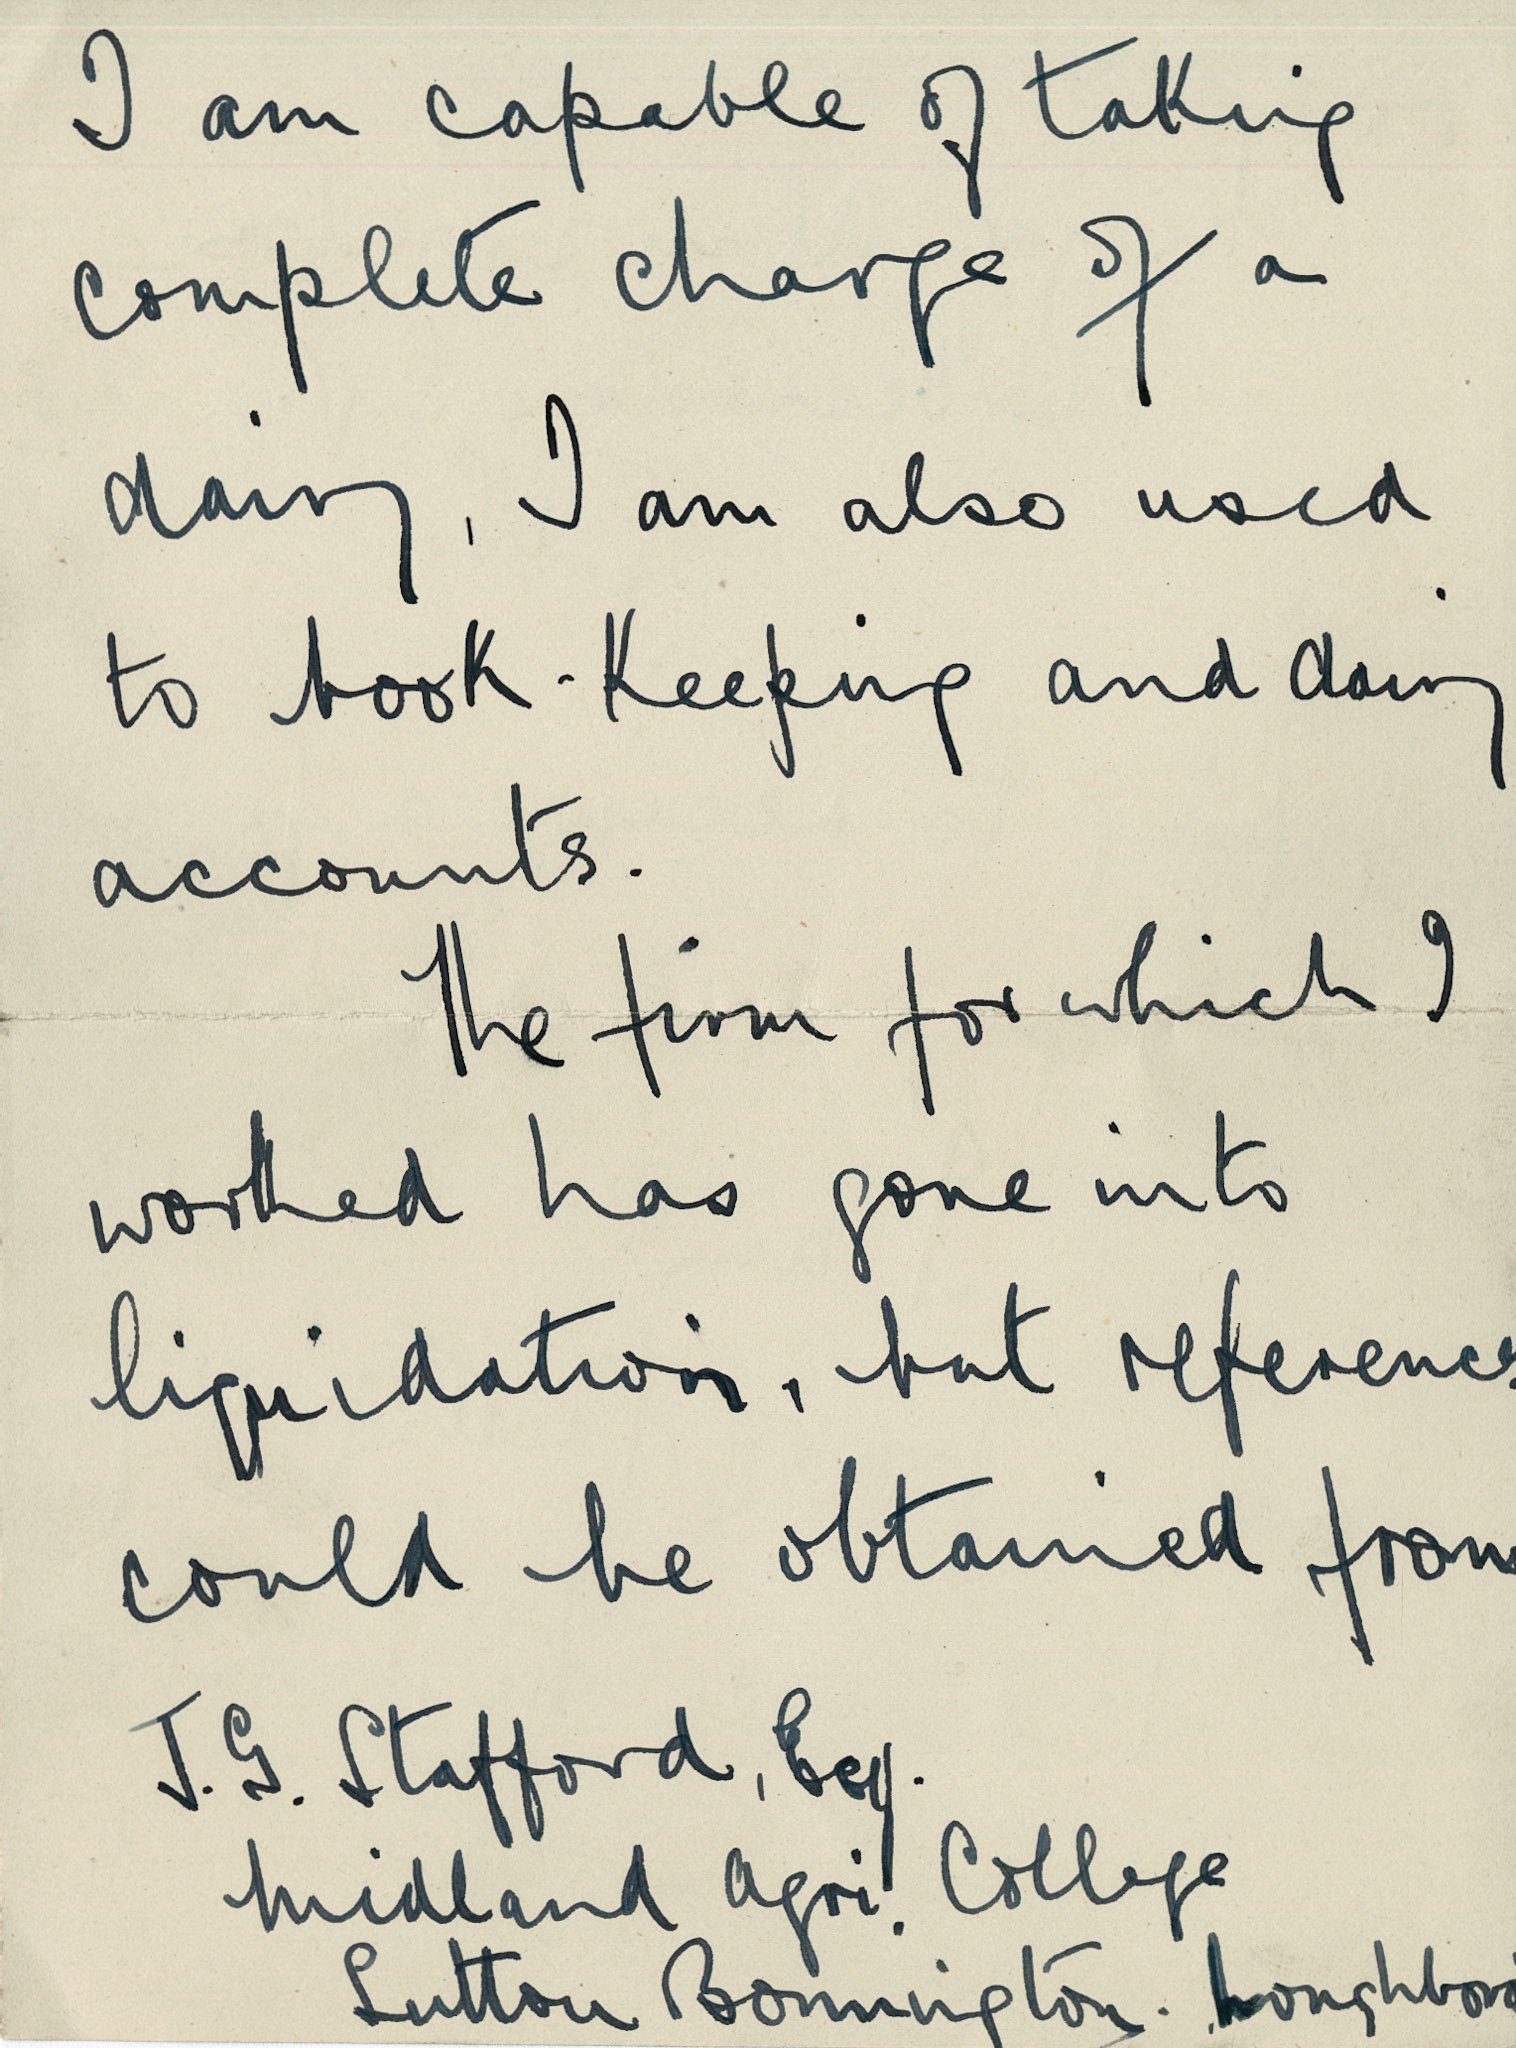 I am capable of taking
complete charge of a
dairy, I am also used
to book-keeping and dairy
accounts.
The firm for which I
worked has gone into
liquidation, but references
could be obtained from
J.G. Stafford, Esq.
Midland Agri. College
Sutton Bonnington. Loughboro